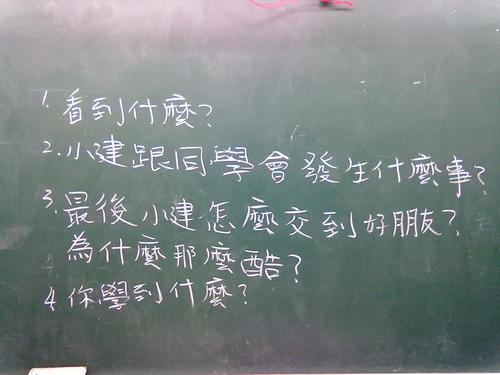 1. 看到什麼?
2. 小建跟同學會發生什麼事?
3. 最後小建怎麼交到好朋友?
為什麼那麼酷?
4 你學到什麼?